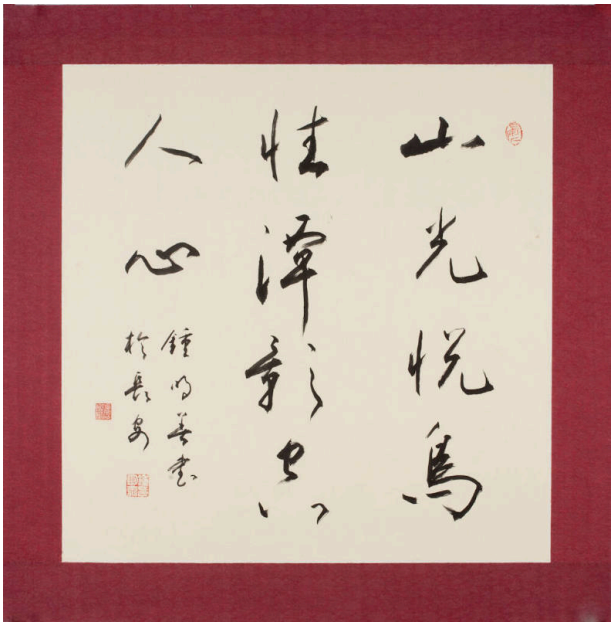 山光悦鸟
性潭影空
人心
鍾明善书
於長安